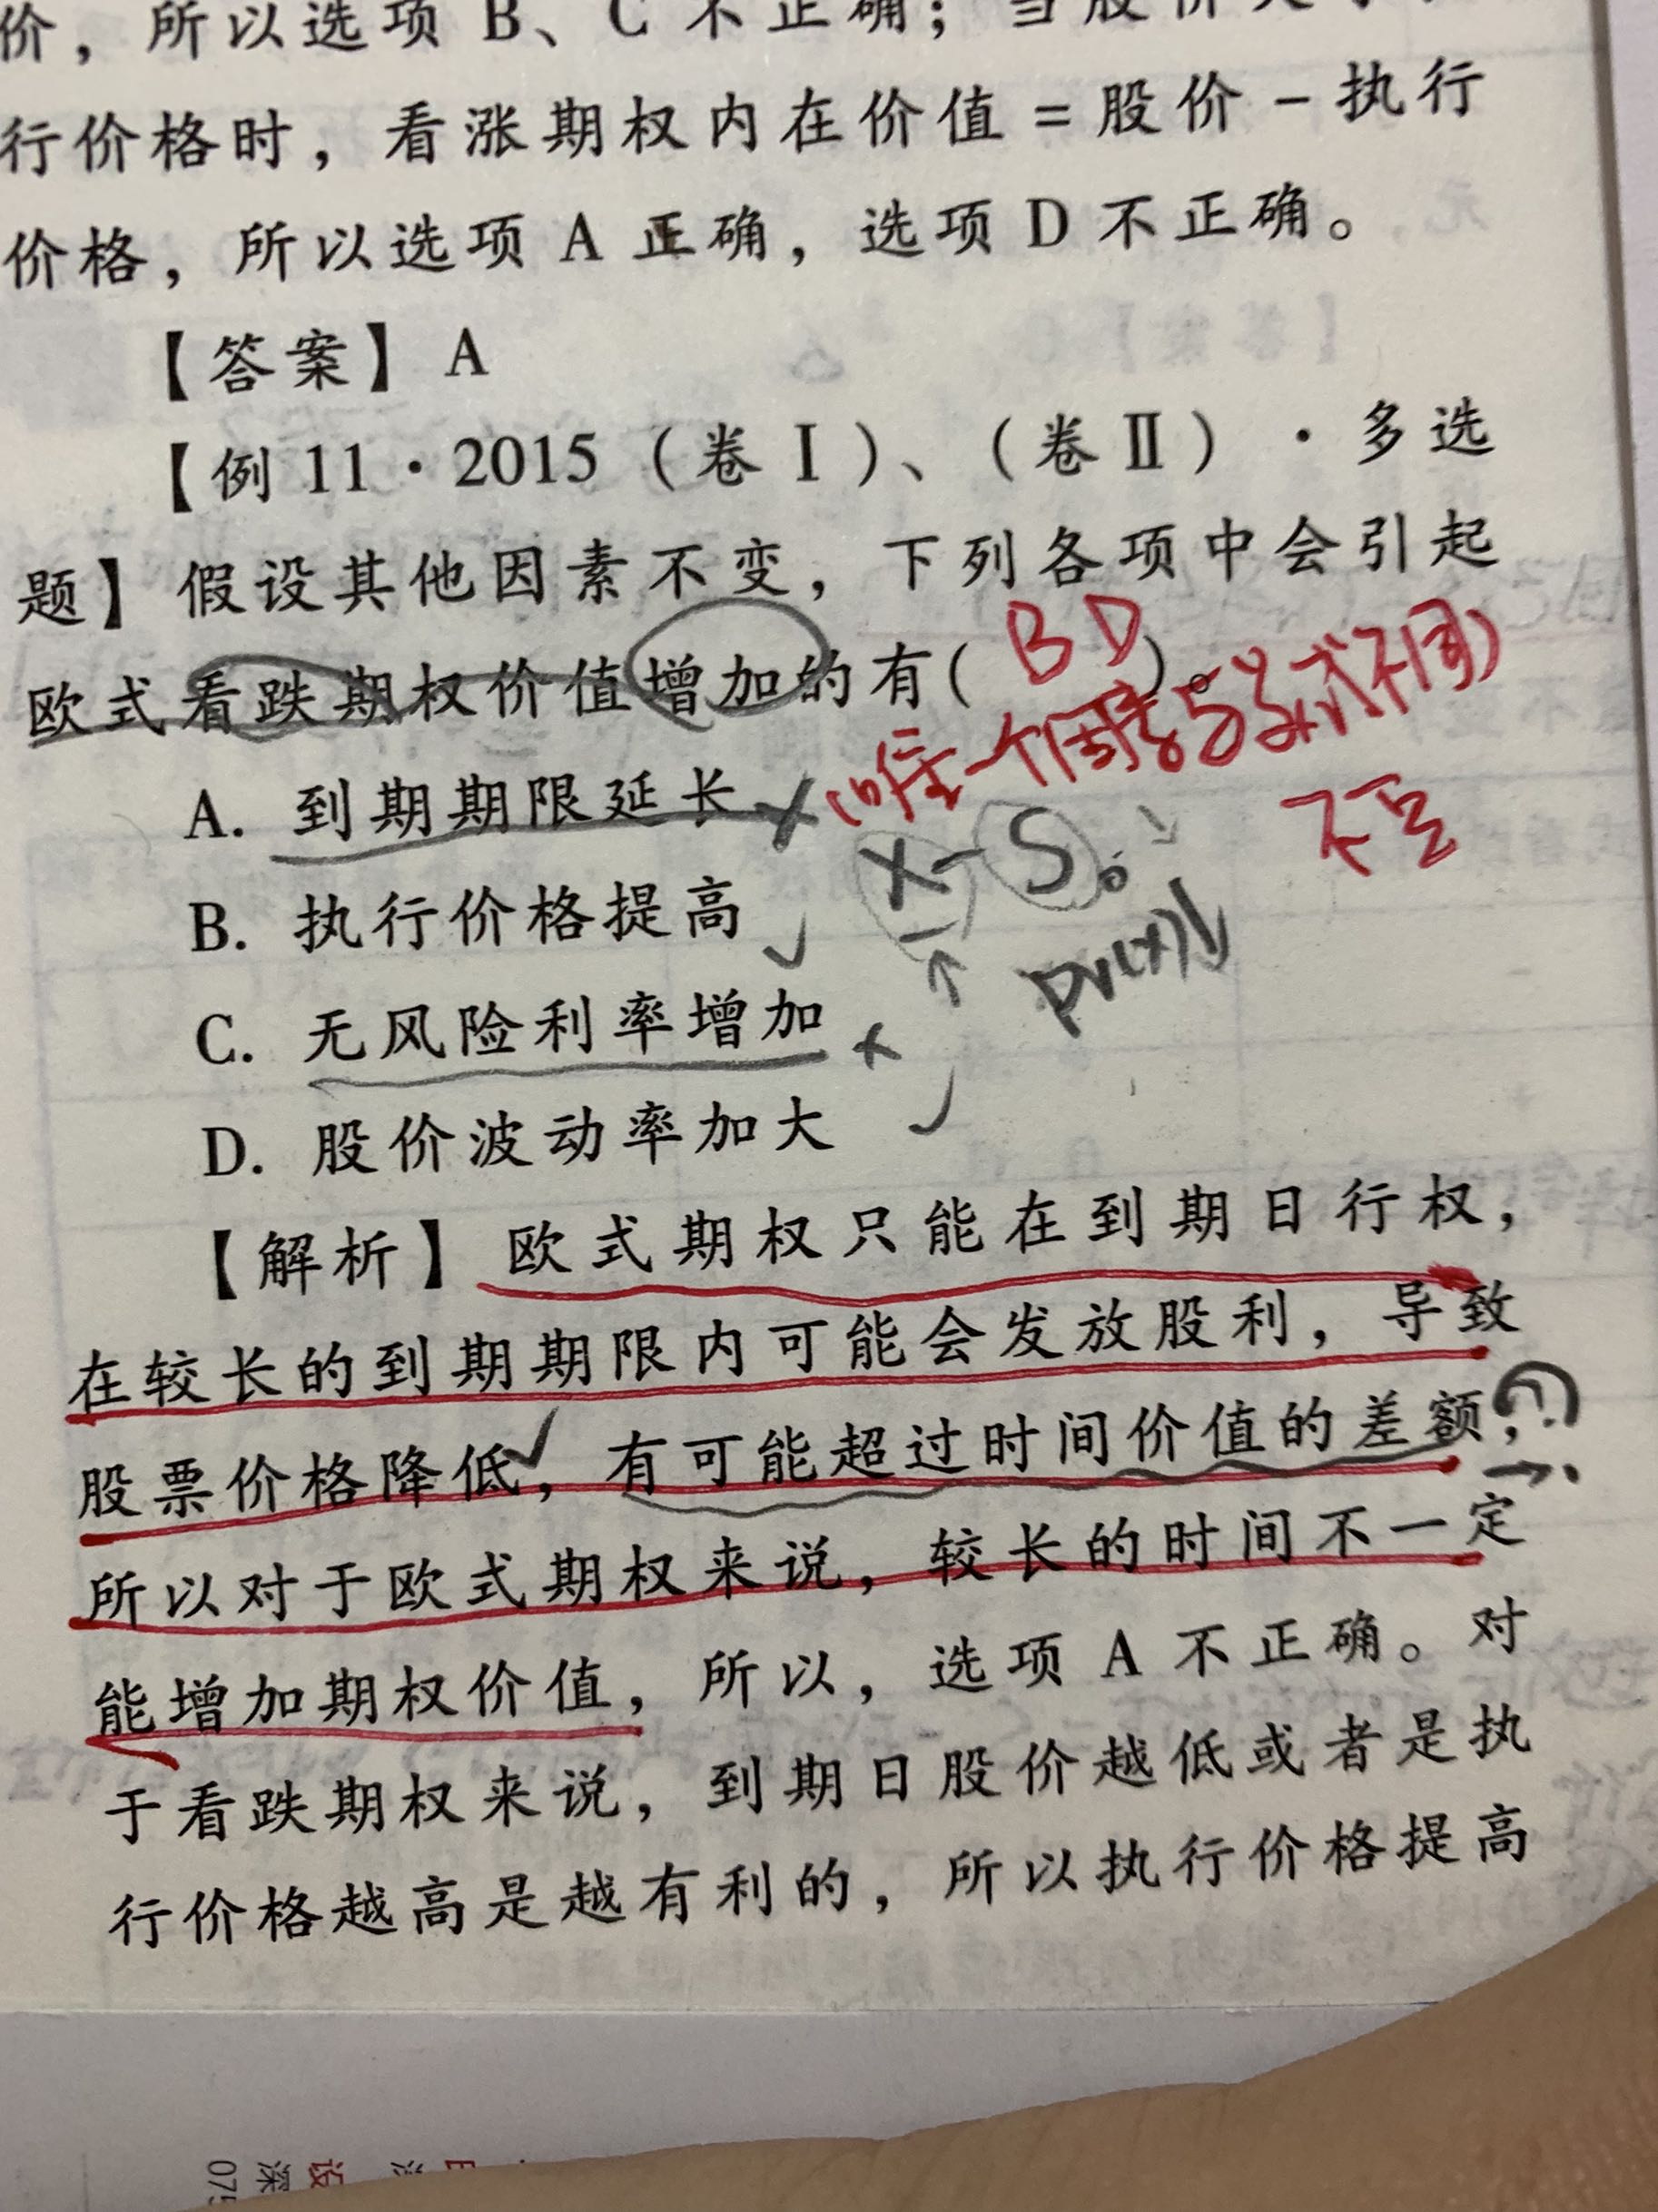 价，所以选项 B、C 不正确；当股价大于
行价格时，看涨期权内在价值 = 股价 - 执行
价格，所以选项 A 正确，选项 D 不正确。
【答案】 A
【例 11·2015（卷Ⅰ）、（卷Ⅱ）·多选
题】假设其他因素不变，下列各项中会引起
欧式看跌期权价值增加的有( BD )。
A. 到期期限延长 × (唯一一个因素与美式不同)
不一定
X - S₀
B. 执行价格提高 ✓ ↑ PV(X)↓
C. 无风险利率增加 ×
D. 股价波动率加大 ✓
【解析】欧式期权只能在到期日行权，
在较长的到期期限内可能会发放股利，导致
股票价格降低，有可能超过时间价值的差额，
所以对于欧式期权来说，较长的时间不一定
能增加期权价值，所以，选项 A 不正确。对
于看跌期权来说，到期日股价越低或者是执
行价格越高是越有利的，所以执行价格提高
075 深 设